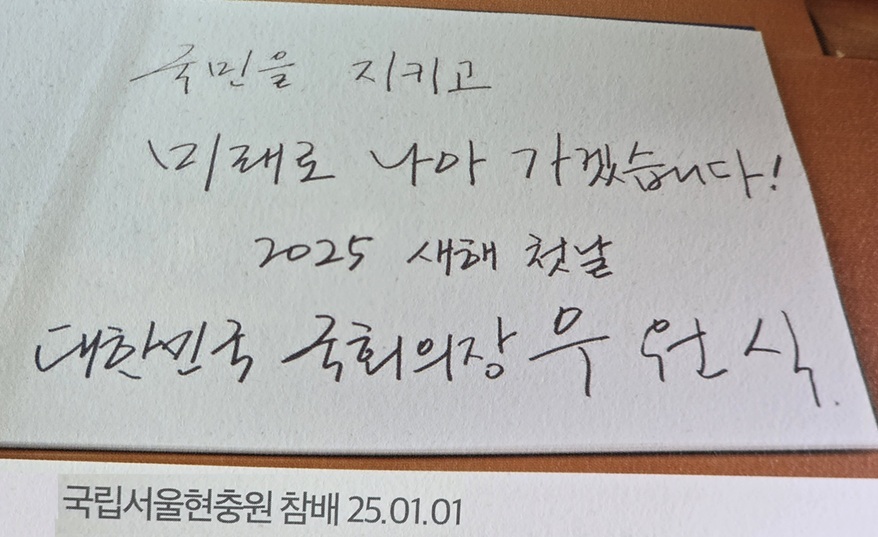 국민을 지키고
미래로 나아 가겠습니다!
2025 새해 첫날
대한민국 국회의장 우 원 식.
국립서울현충원 참배 25.01.01